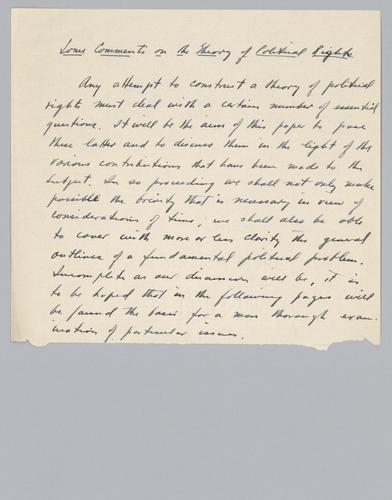 Some Comments on the Theory of Political Rights
Any attempt to construct a theory of political
rights must deal with a certain number of essential
questions. It will be the aim of this paper to pose
these latter and to discuss them in the light of the
various contributions that have been made to the
subject. In so proceeding we shall not only make
possible the brevity that is necessary in view of
considerations of time; we shall also be able
to cover with more or less clarity the general
outlines of a fundamental political problem.
Incomplete as our discussion will be, it is
to be hoped that in the following pages will
be found the basis for a more thorough exam-
ination of particular issues.